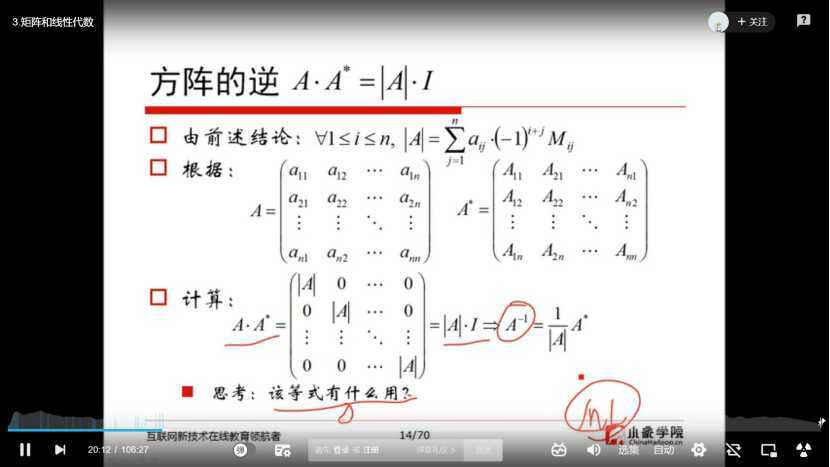 3.矩阵和线性代数
+ 关注
方阵的逆 A·A* = |A|·I
由前述结论：∀1≤i≤n, |A| = ∑_{j=1}^{n} a_{ij}·(-1)^{i+j} M_{ij}
根据：
A = ( a_{11} a_{12} ⋯ a_{1n}
a_{21} a_{22} ⋯ a_{2n}
⋮ ⋮ ⋱ ⋮
a_{n1} a_{n2} ⋯ a_{nn} )
A* = ( A_{11} A_{21} ⋯ A_{n1}
A_{12} A_{22} ⋯ A_{n2}
⋮ ⋮ ⋱ ⋮
A_{1n} A_{2n} ⋯ A_{nn} )
计算：
A·A* = ( |A| 0 ⋯ 0
0 |A| ⋯ 0
⋮ ⋮ ⋱ ⋮
0 0 ⋯ |A| ) = |A|·I ⇒ A^{-1} = \frac{1}{|A|} A*
思考：该等式有什么用？
互联网新技术在线教育领航者
14/70
小象学院
ChinaHadoop.cn
20:12 / 106:27
请先 登录 或 注册
弹幕礼仪 >
发送
选集
自动